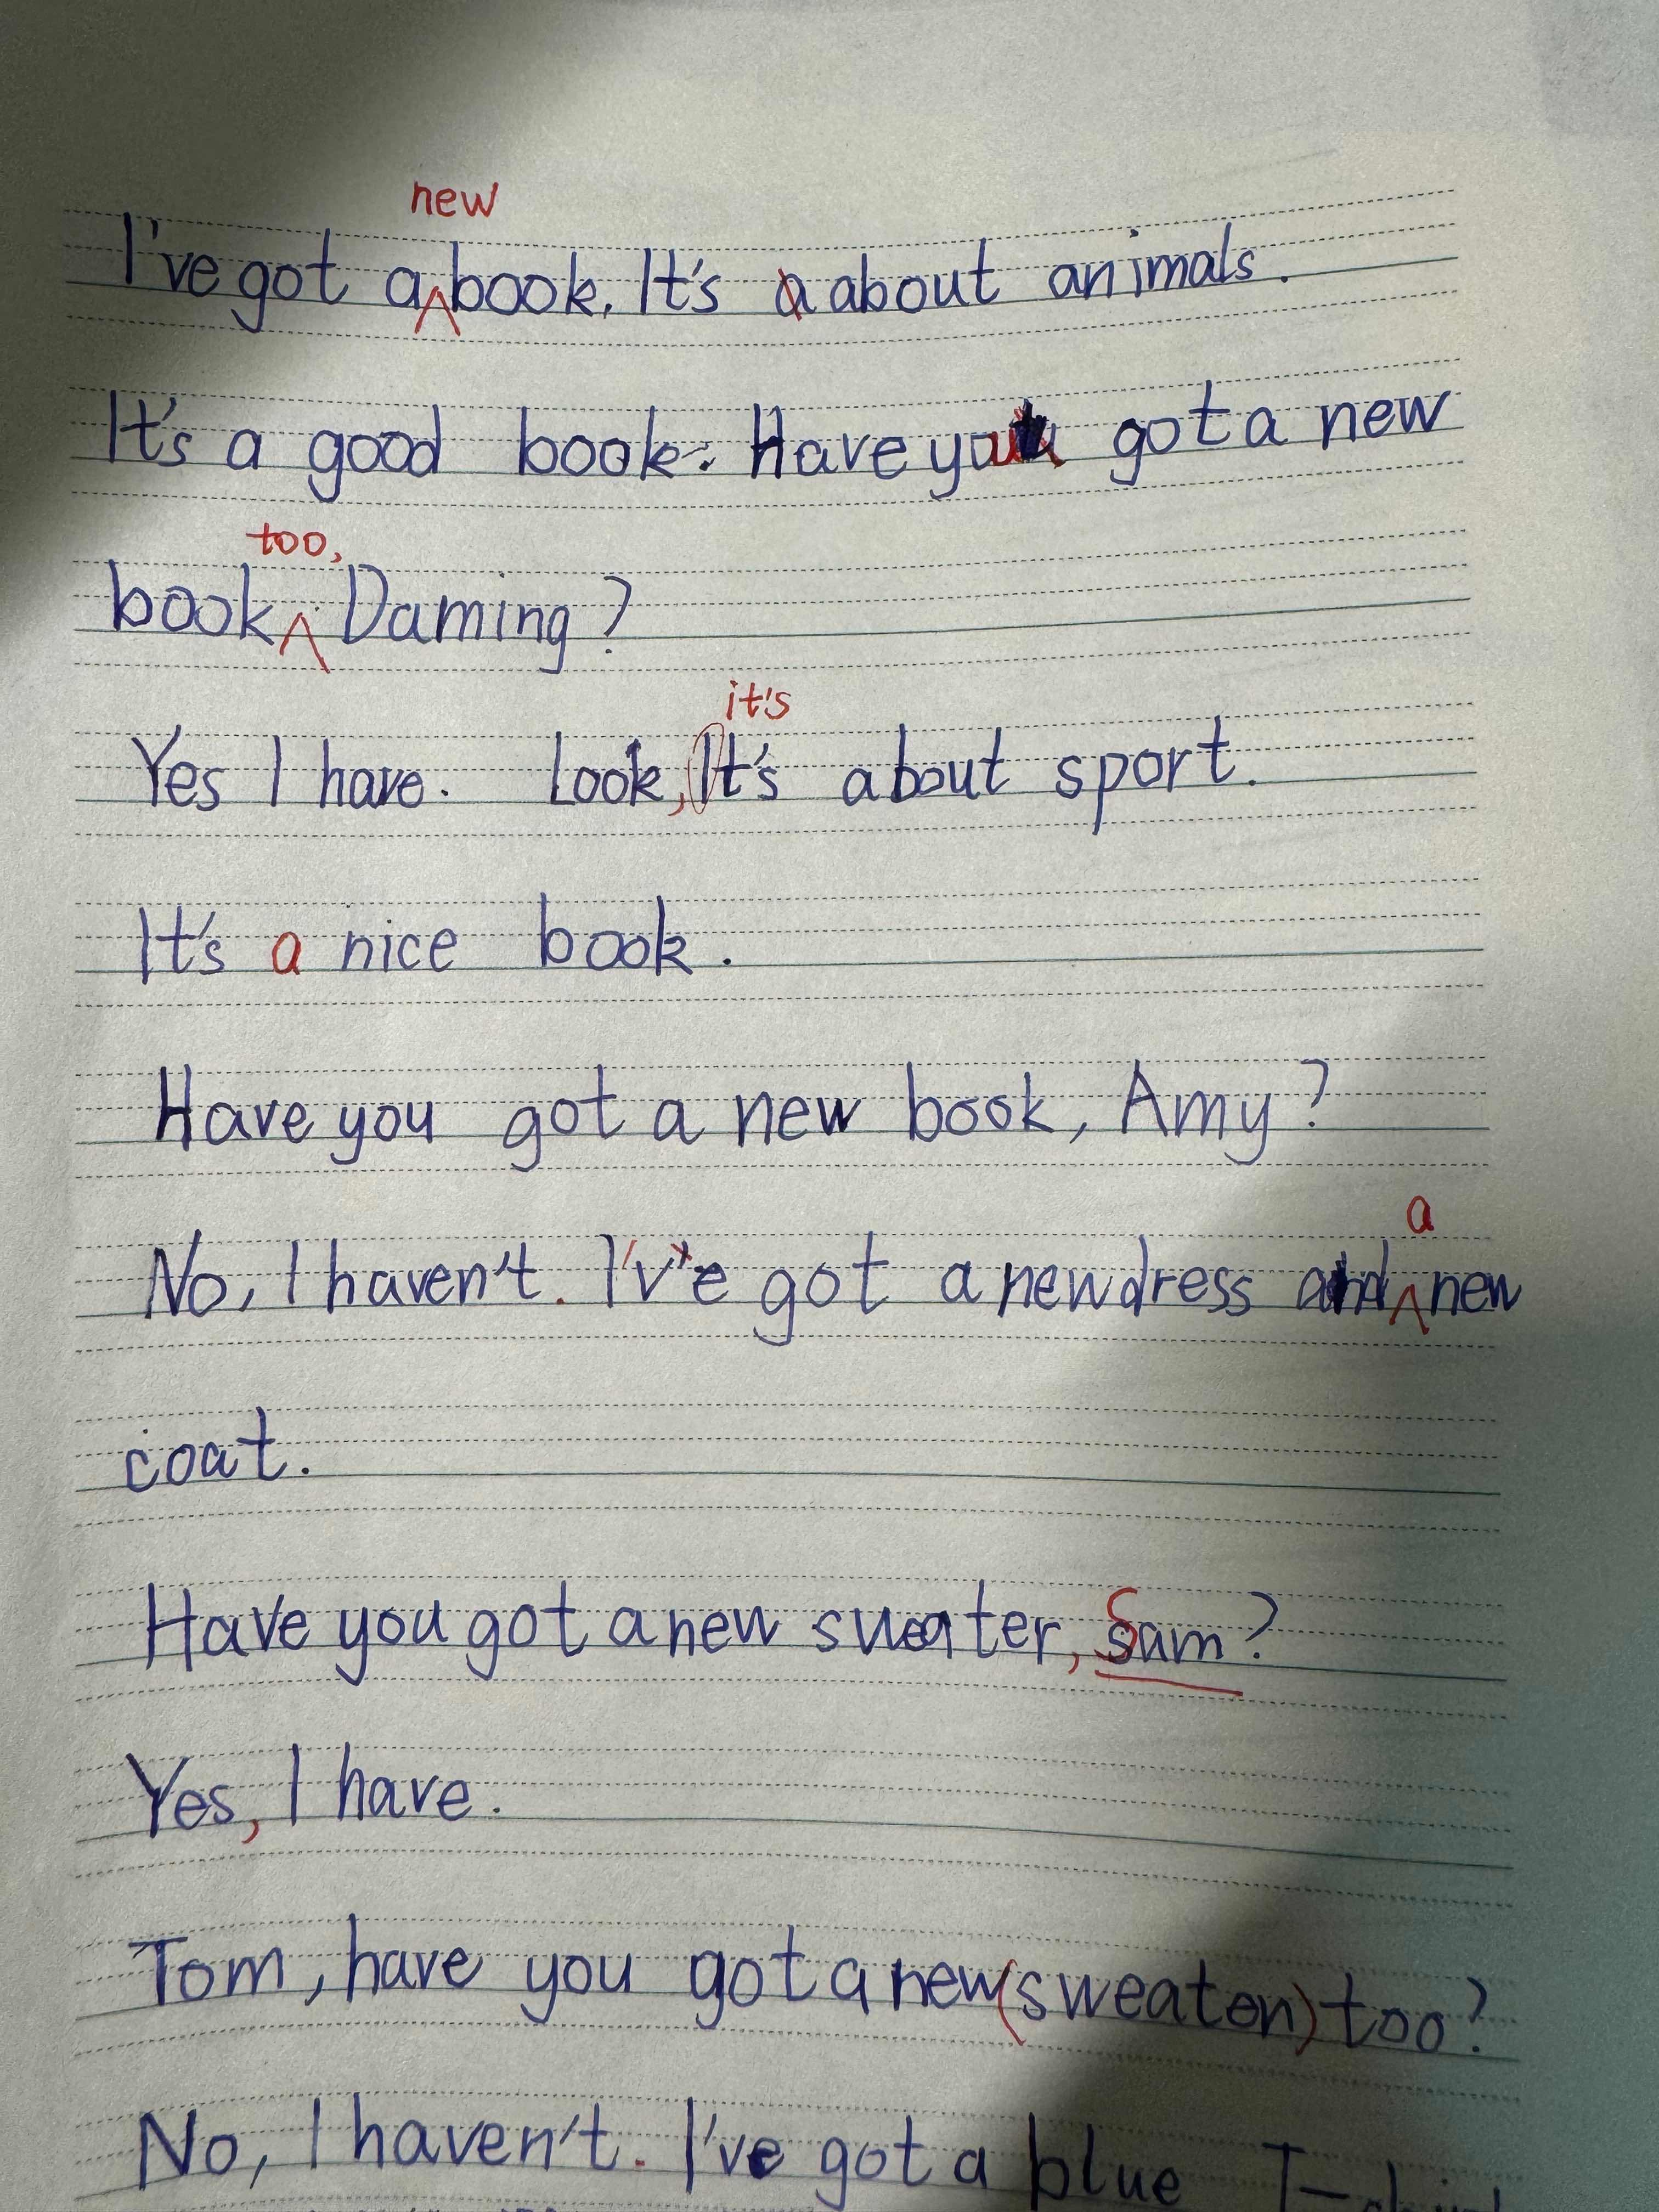 new
I've got a book. It's a about animals.
It's a good book. Have you got a new
too,
book Daming?
it's
Yes I have. Look, It's about sport.
It's a nice book.
Have you got a new book, Amy?
a
No, I haven't. I'v'e got a new dress and new
coat.
Have you got a new sweater, Sam?
Yes, I have.
Tom, have you got a new (sweaten) too?
No, I haven't. I've got a blue